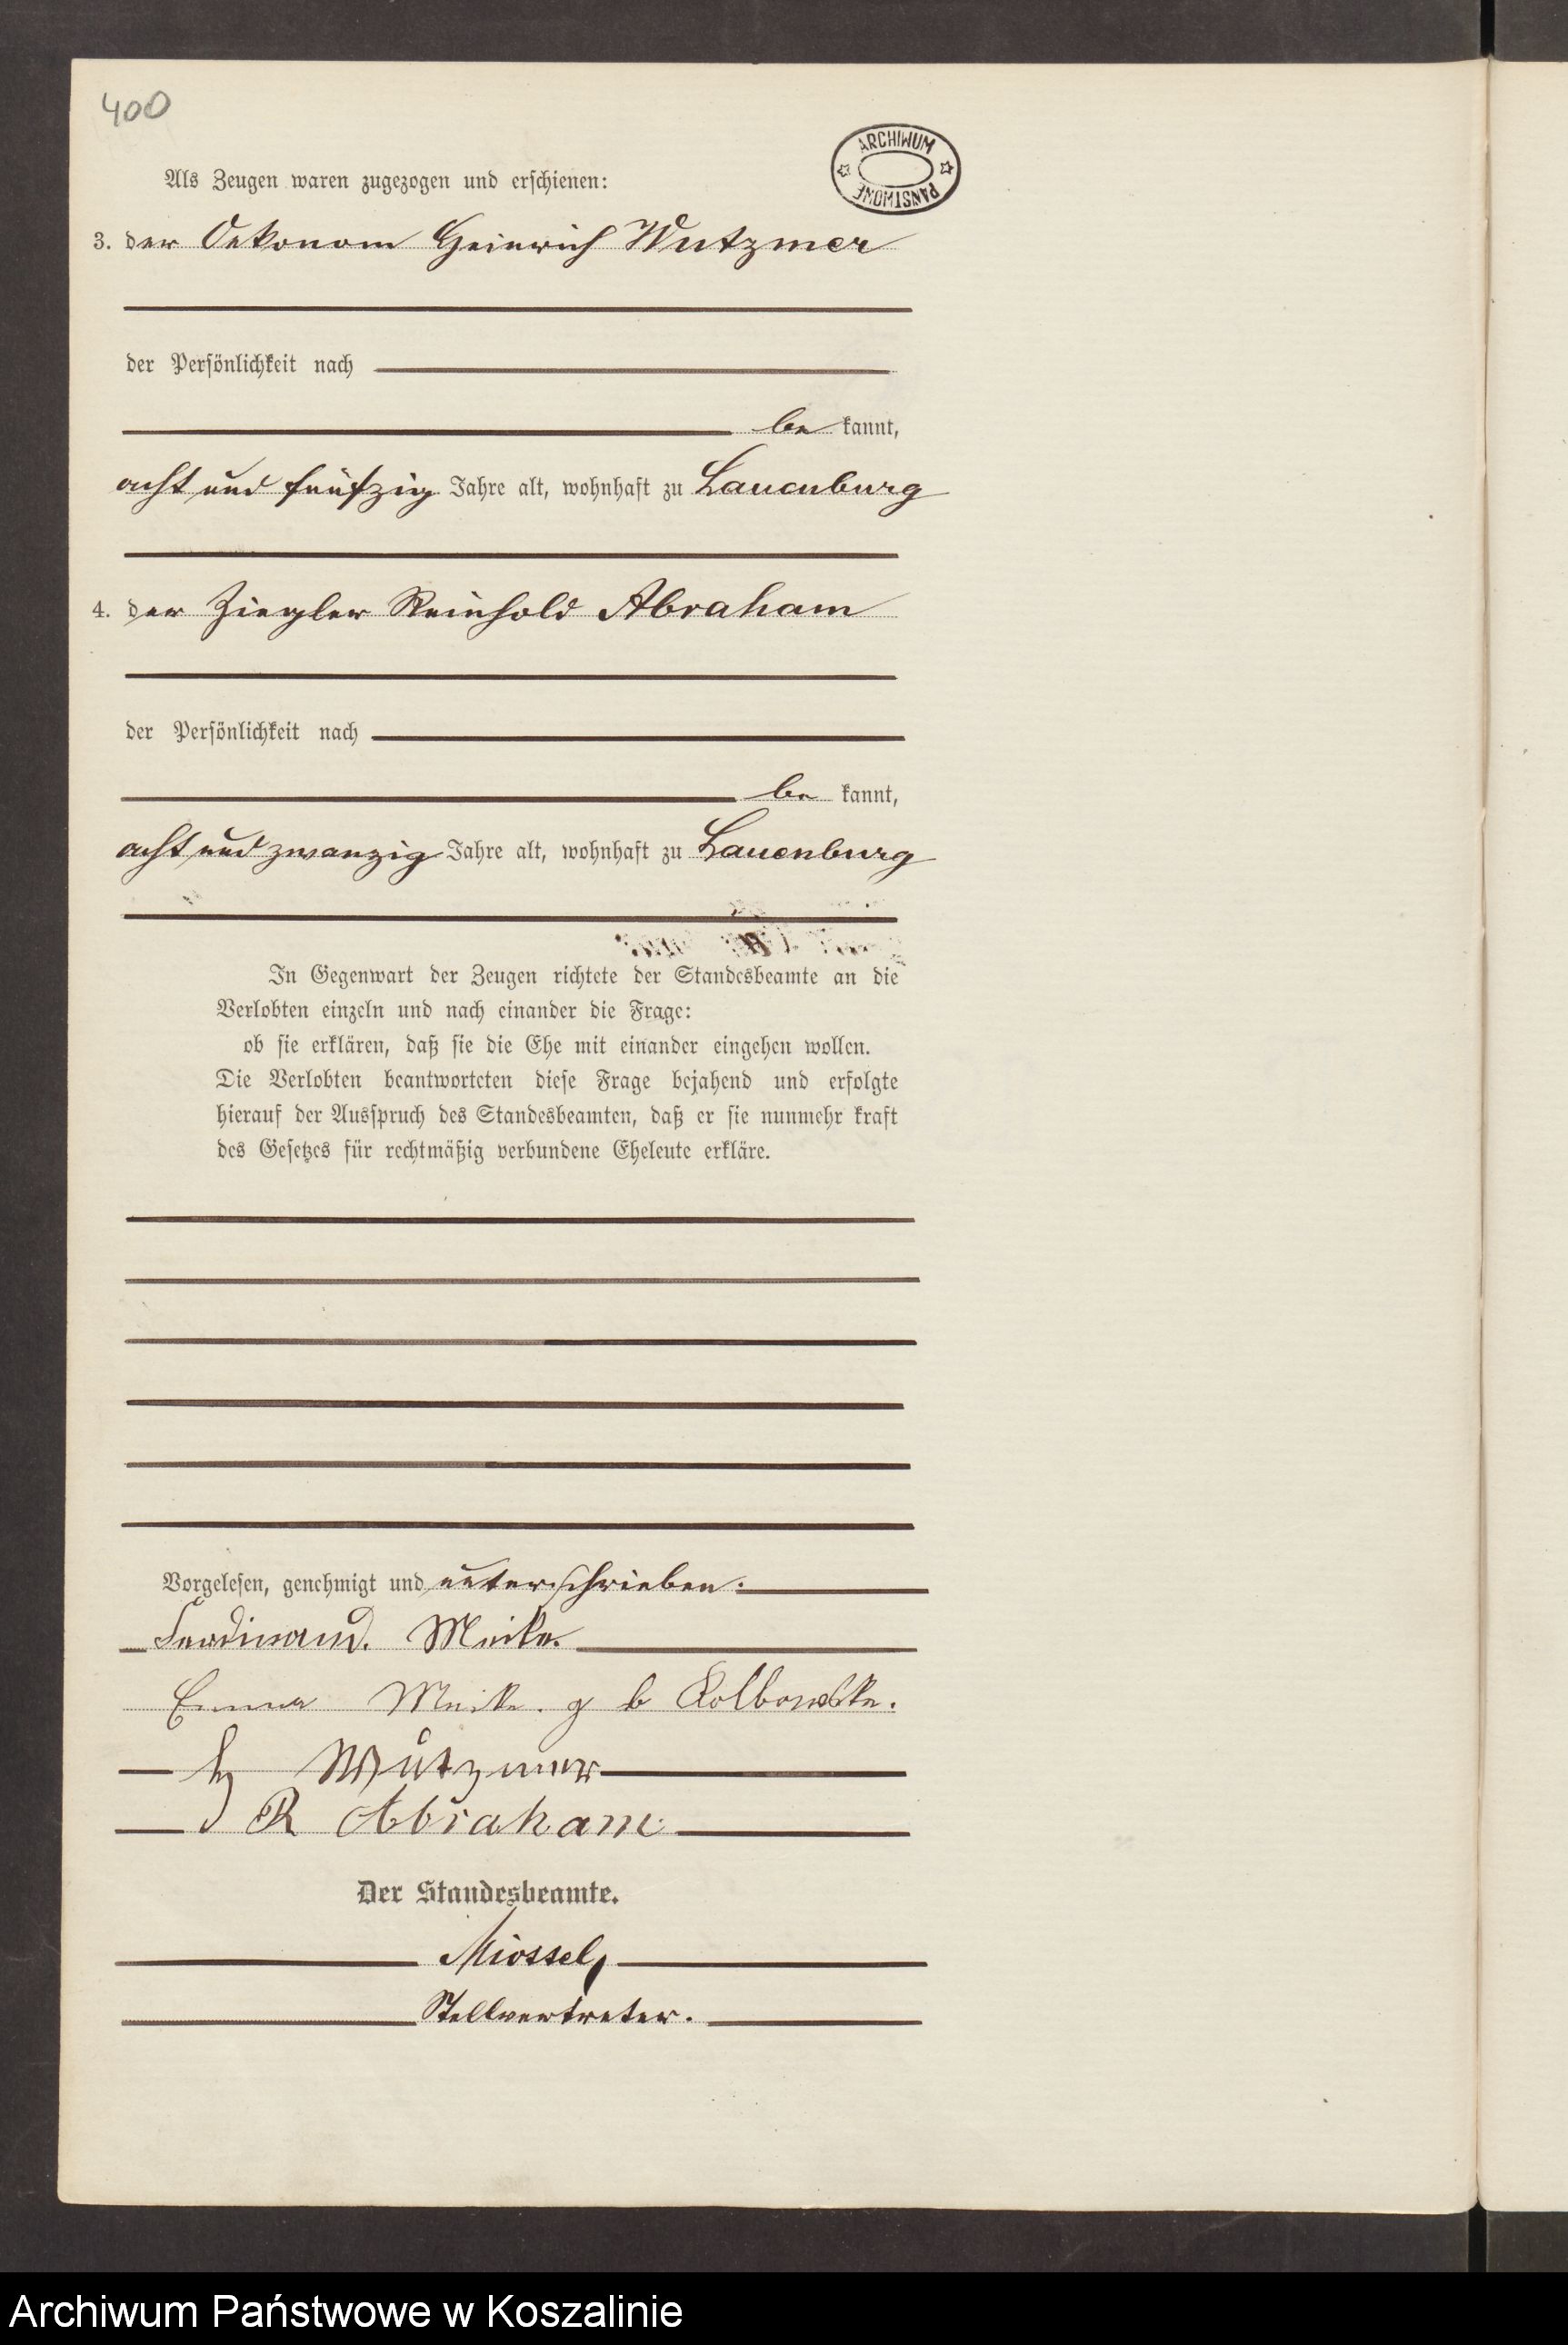 400
ARCHIWUM PAŃSTWOWE
Als Zeugen waren zugezogen und erschienen:
3. der Oekonom Heinrich Wutzmer
der Persönlichkeit nach
be kannt,
acht und fünfzig Jahre alt, wohnhaft zu Lauenburg
4. der Ziegler Reinhold Abraham
der Persönlichkeit nach
be kannt,
acht und zwanzig Jahre alt, wohnhaft zu Lauenburg
In Gegenwart der Zeugen richtete der Standesbeamte an die
Verlobten einzeln und nach einander die Frage:
ob sie erklären, daß sie die Ehe mit einander eingehen wollen.
Die Verlobten beantworteten diese Frage bejahend und erfolgte
hierauf der Ausspruch des Standesbeamten, daß er sie nunmehr kraft
des Gesetzes für rechtmäßig verbundene Eheleute erkläre.
Vorgelesen, genehmigt und unterschrieben.
Ferdinand. Meike.
Emma Meike. g b
Wutzmer
R Abraham.
Der Standesbeamte.
Miossel,
Stellvertreter.
Archiwum Państwowe w Koszalinie